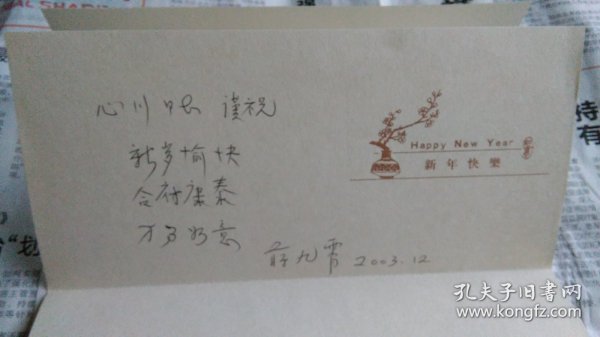 心川 谨祝
新岁愉快
合府康泰
万事如意
蒋九霄 2003.12
Happy New Year
新年快樂
孔夫子旧书网
www.kongfz.com